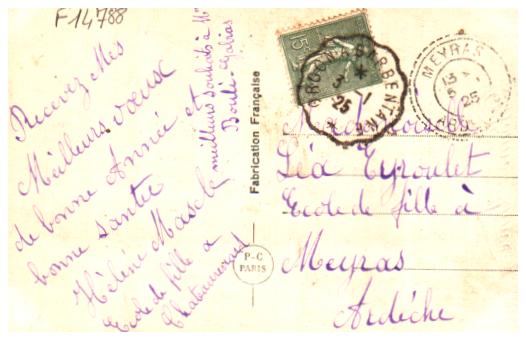 F14788
Recevez Mes
Meilleurs voeux
de bonne Année et
bonne santée
Hélène Masclé
Ecole de fille à
meilleurs souhaits à
Fabrication Française
P-C
PARIS
15
25
MEYRAS
13
5
25
Mademoiselle
Léa Eyroulet
Ecole de fille à
Meyras
Ardèche